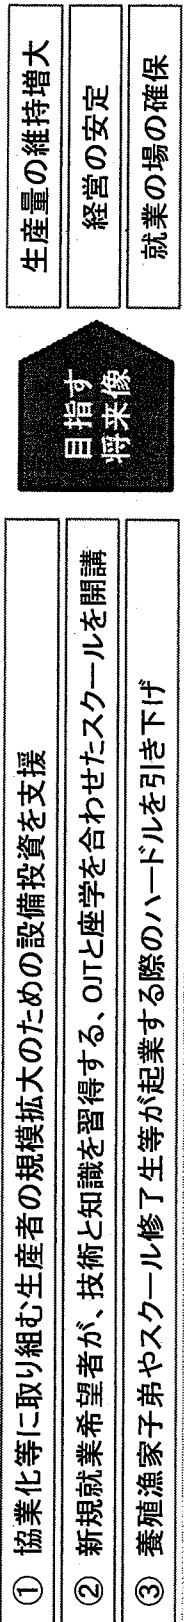 ① 協業化等に取り組む生産者の規模拡大のための設備投資を支援
② 新規就業希望者が、技術と知識を習得する、OJTと座学を合わせたスクールを開講
③ 養殖漁家子弟やスクール修了生等が起業する際のハードルを引き下げ
目指す
将来像
生産量の維持増大
経営の安定
就業の場の確保